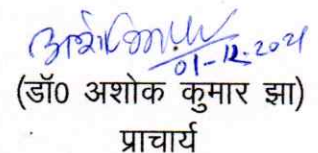 01-12-2021
(डॉ0 अशोक कुमार झा)
प्राचार्य